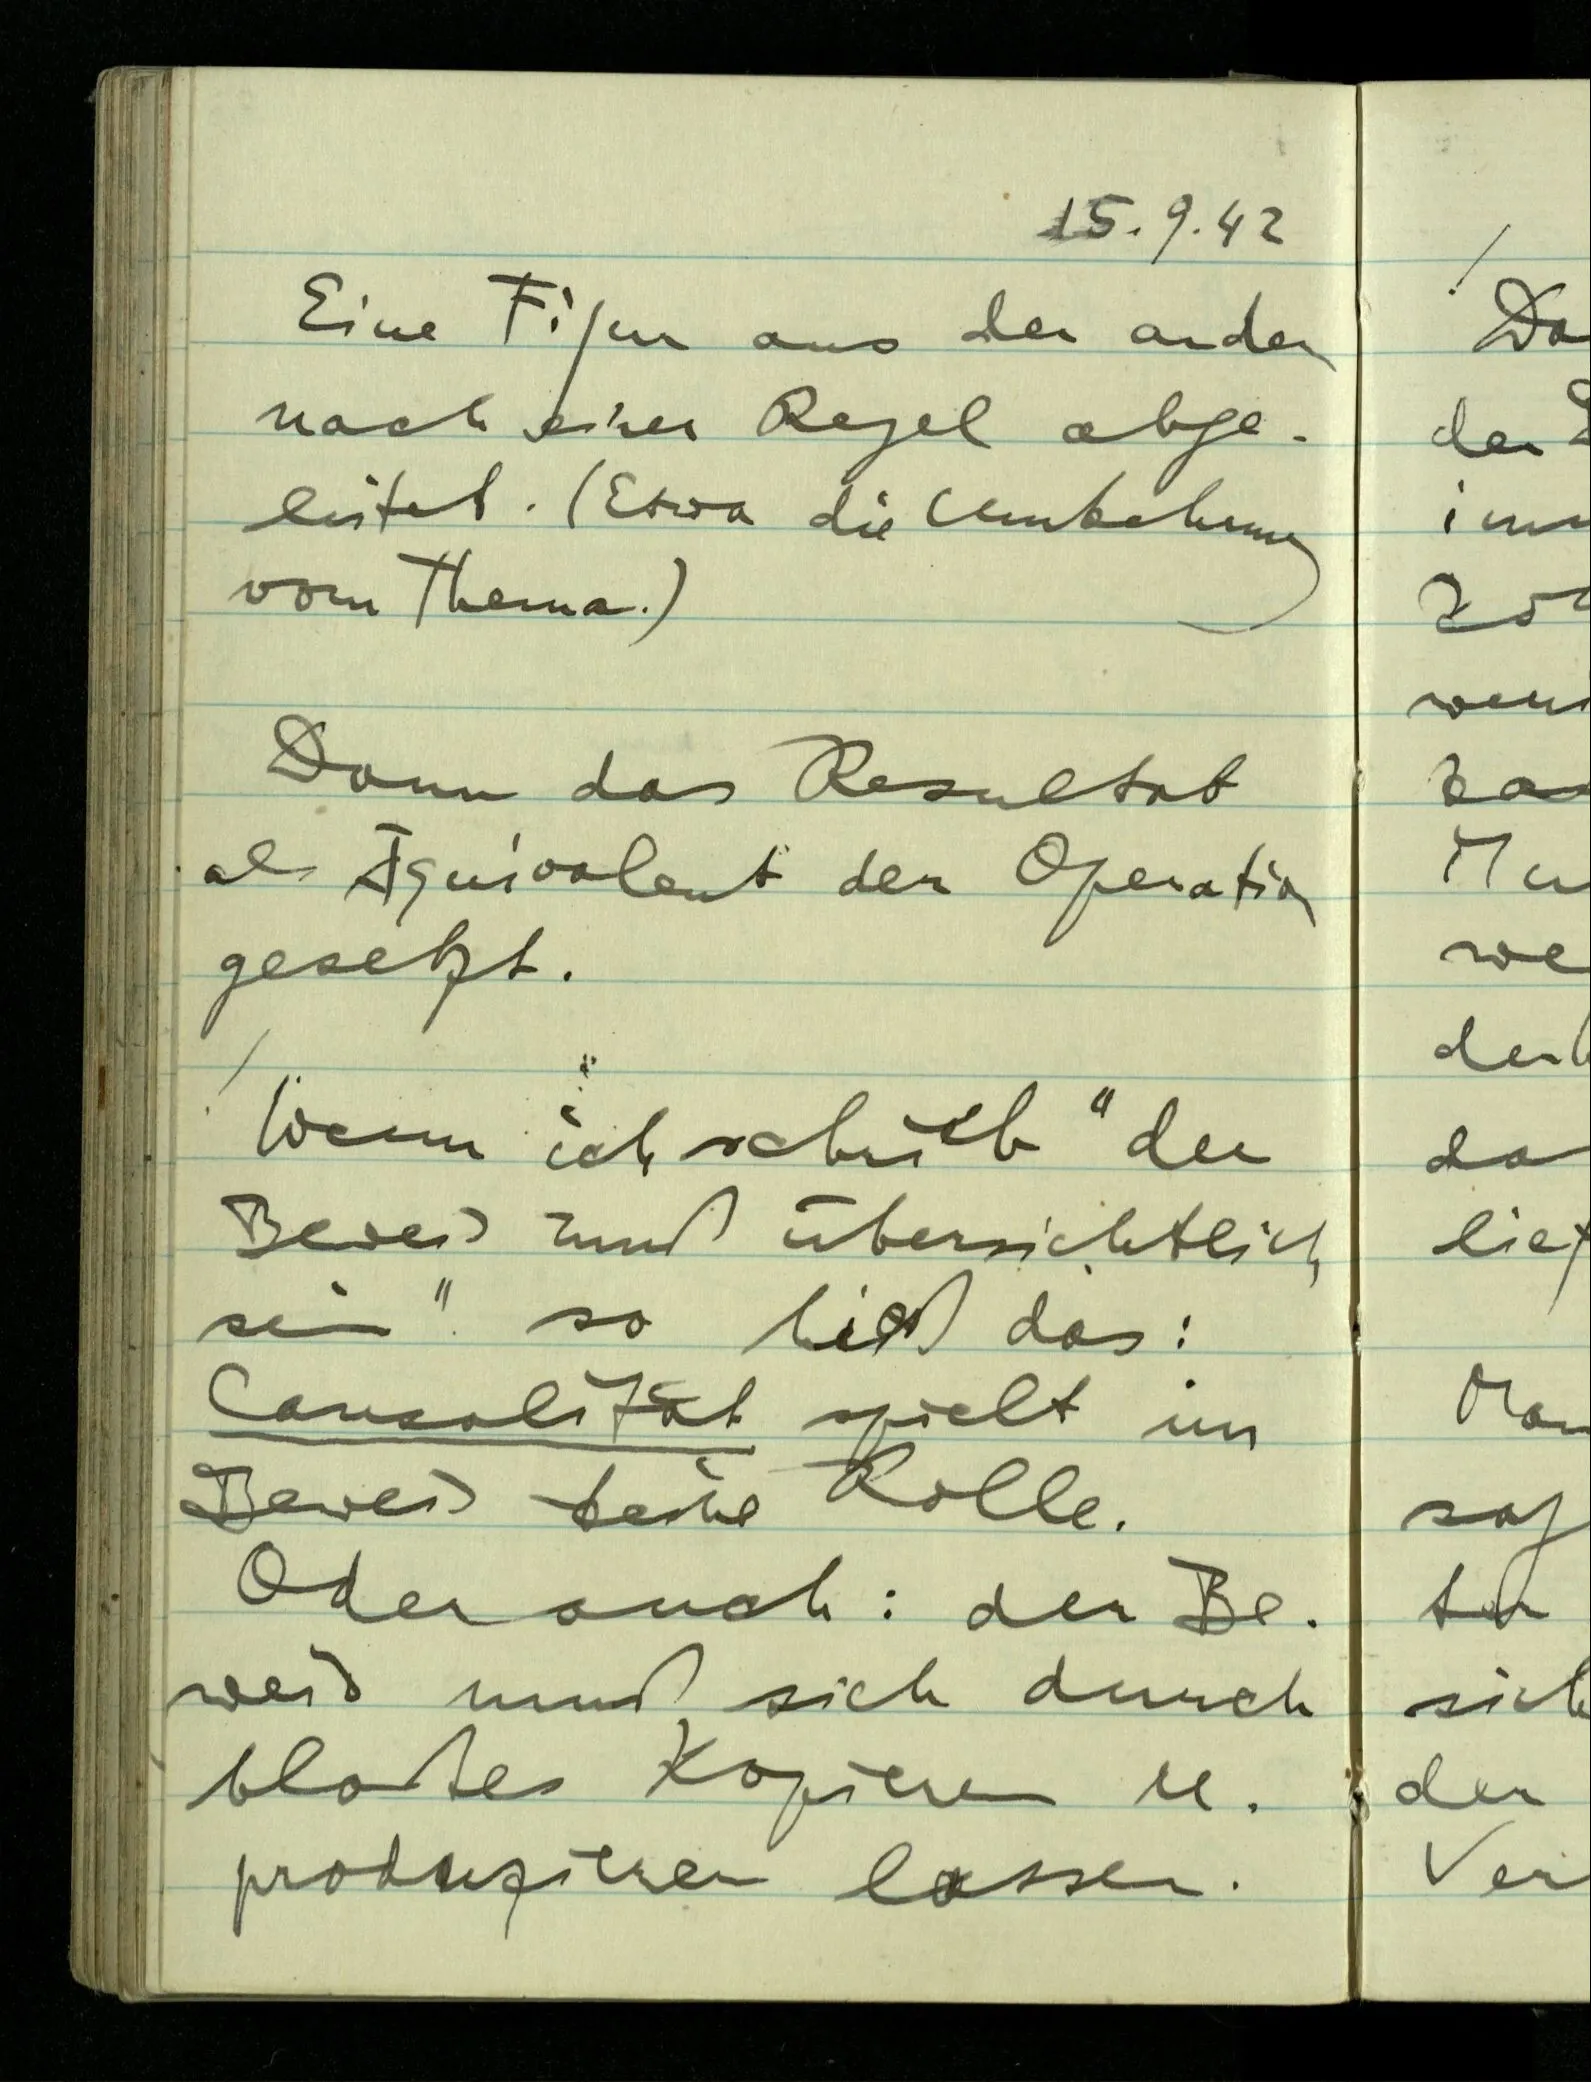 15.9.42
Eine Figur aus der andern
nach einer Regel abge-
leitet. (Etwa die Umkehrung
vom Thema.)
Dann das Resultat
als Äquivalent der Operation
gesetzt.
Wenn ich schrieb "der
Beweis muß übersichtlich
sein" so hieß das:
Causalität spielt im
Beweis keine Rolle.
Oder auch: der Be-
weis muß sich durch
bloßes Kopieren re-
produzieren lassen.
/
der
wen
we
da
sich
der
Ver